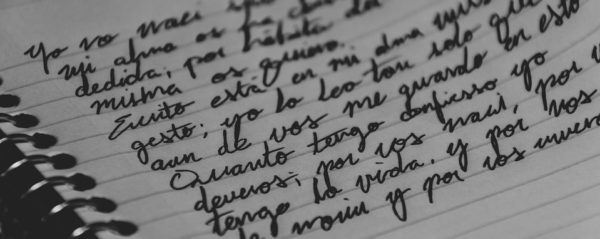 Yo no naci
mi alma os ha
dedida; por hábito del
misma os quiero.
Escrito está en mi alma
gesto; yo lo leo tan solo que
aun de vos me guardo en esto
Quanto tengo confieso yo
deveros; por vos naci, por
tengo la vida. y por vos
de morir y por vos muero